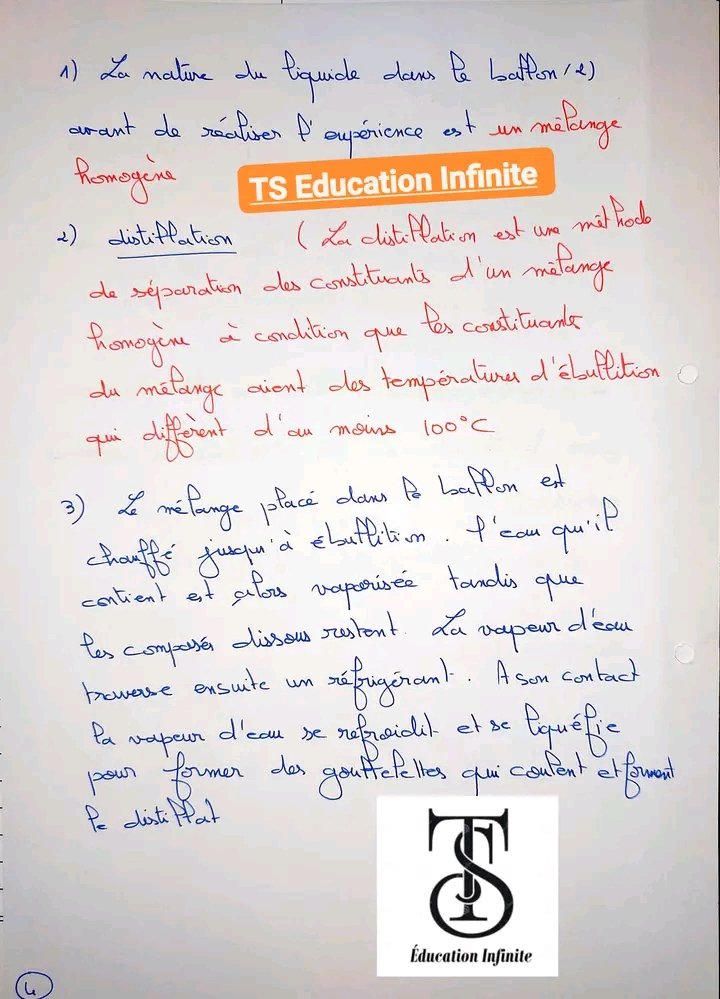 1) La nature du liquide dans le ballon (2)
avant de réaliser l'expérience est un mélange
homogène
TS Education Infinite
2) distillation ( La distillation est une méthode
de séparation des constituants d'un mélange
homogène à condition que les constituants
du mélange aient des températures d'ébullition
qui diffèrent d'au moins 100°C
3) Le mélange placé dans le ballon est
chauffé jusqu'à ébullition. l'eau qu'il
contient est alors vaporisée tandis que
les composés dissous restent. La vapeur d'eau
traverse ensuite un réfrigérant. A son contact
la vapeur d'eau se refroidit et se liquéfie
pour former des gouttelettes qui coulent et forment
le distillat
TS
Éducation Infinite
4